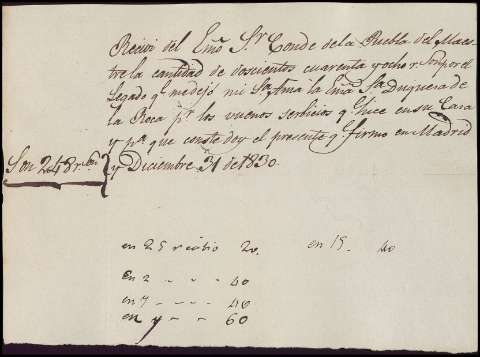 Recivi del Exmo Sr Conde de la Puebla del Maes-
tre la cantidad de doscientos cuarenta y ocho r. Son por el
Legado q. me dejó mi Sa Ama la Exma Sa Duquesa de
la Roca pr. los vuenos servicios q. hice en su Casa
y pa. que conste doy el presente q. firmo en Madrid
Son 248 r. vn } y Diciembre 31 de 1830.
en 25 recibio 20. en 15 - 40
en 2 - - - 40
en - - - 40
en y - - 60